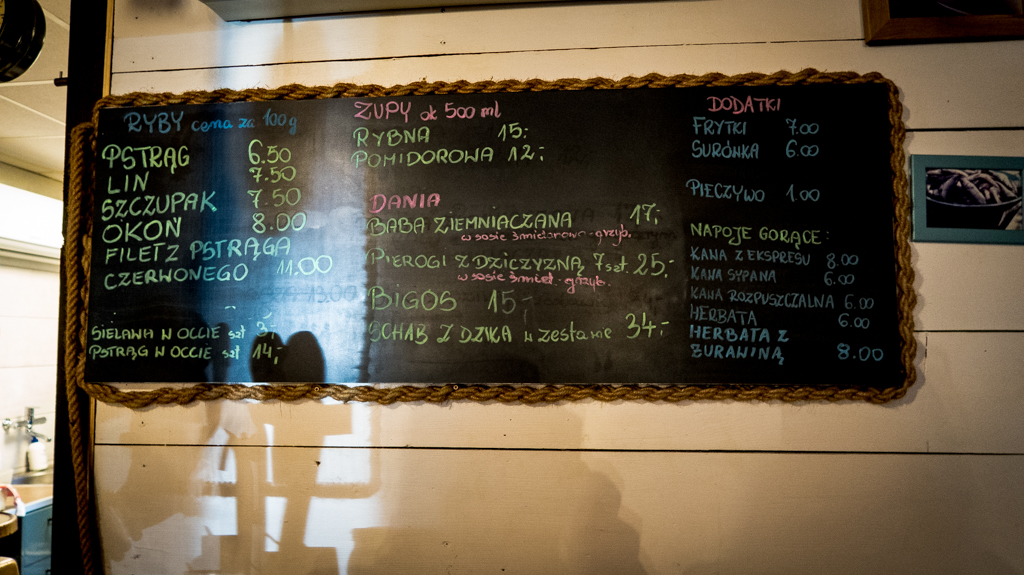 RYBY cena za 100g
PSTRĄG 6.50
LIN 7.50
SZCZUPAK 7.50
OKOŃ 8.00
FILET Z PSTRĄGA
CZERWONEGO 11.00
SIELAWA W OCCIE szt 3,-
PSTRĄG W OCCIE szt 14,-
ZUPY ok 500 ml
RYBNA 15,-
POMIDOROWA 12,-
DANIA
BABA ZIEMNIACZANA 17,-
w sosie śmietanowo-grzyb.
PIEROGI Z DZICZYZNĄ 7szt. 25,-
w sosie śmiet.-grzyb.
BIGOS 15,-
SCHAB Z DZIKA w zestawie 34,-
DODATKI
FRYTKI 7.00
SURÓWKA 6.00
PIECZYWO 1.00
NAPOJE GORĄCE:
KAWA Z EKSPRESU 8.00
KAWA SYPANA 6.00
KAWA ROZPUSZCZALNA 6.00
HERBATA 6.00
HERBATA Z
ŻURAWINĄ 8.00